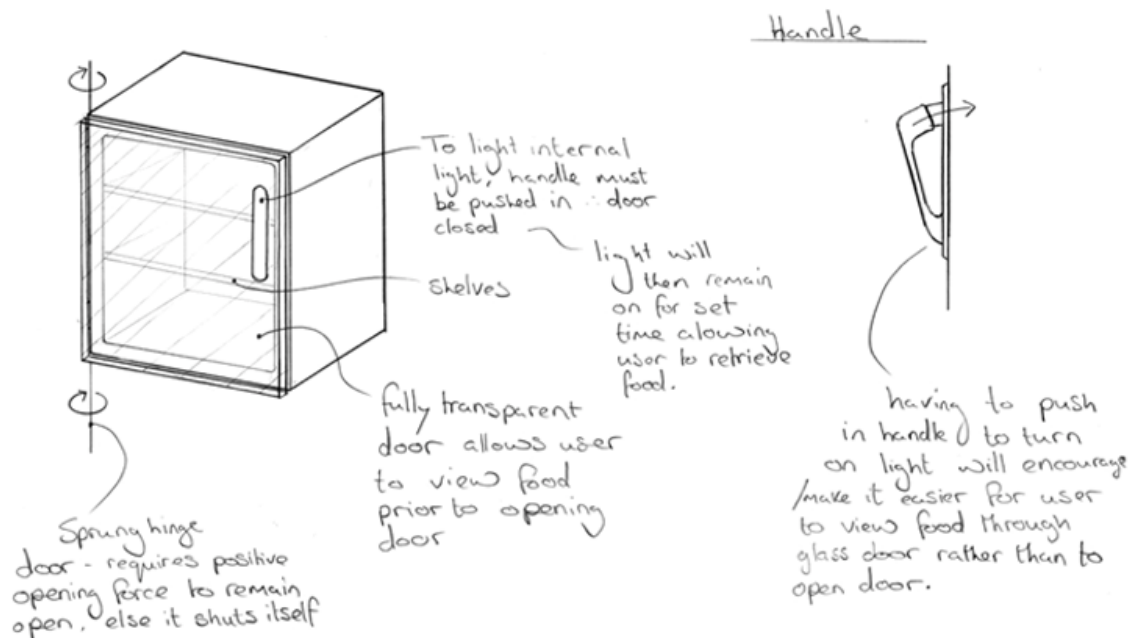 Handle
To light internal
light, handle must
be pushed in ∴ door
closed
light will
then remain
on for set
time alowing
user to retrieve
food.
shelves
fully transparent
door allows user
to view food
prior to opening
door
Sprung hinge
door - requires positive
opening force to remain
open, else it shuts itself
having to push
in handle to turn
on light will encourage
/make it easier for user
to view food through
glass door rather than to
open door.